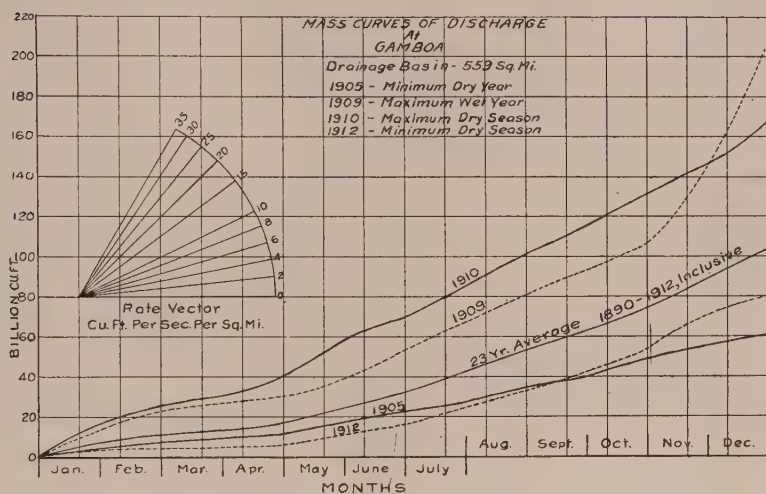 MASS CURVES OF DISCHARGE
At
GAMBOA
Drainage Basin - 559 Sq. Mi.
1905 - Minimum Dry Year
1909 - Maximum Wet Year
1910 - Maximum Dry Season
1912 - Minimum Dry Season
220
200
180
160
140
120
100
80
60
40
20
0
BILLION CU.FT.
35
30
25
20
15
10
8
6
4
2
0
Rate Vector
Cu. Ft. Per Sec. Per Sq. Mi.
1910
1909
23 Yr. Average 1890-1912, Inclusive
1905
1912
Jan. Feb. Mar. Apr. May June July Aug. Sept. Oct. Nov. Dec.
MONTHS